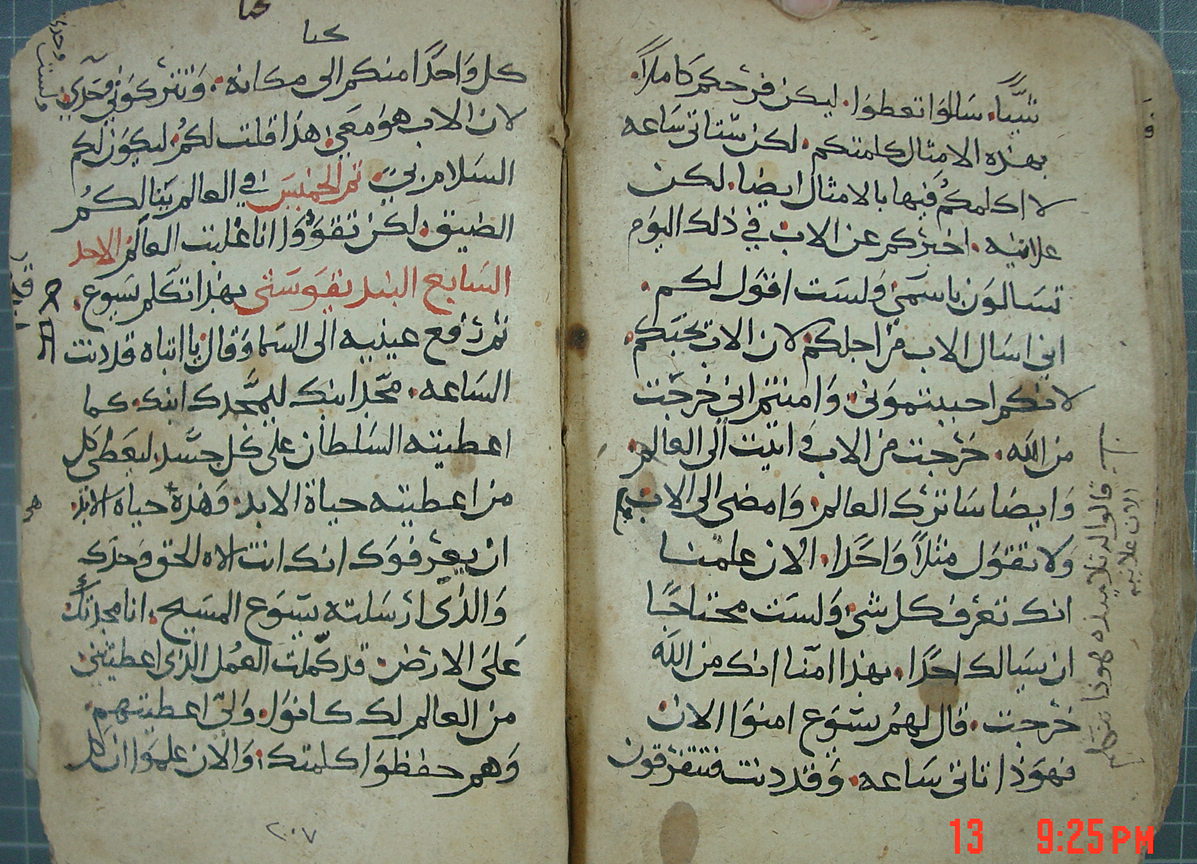 شيًّا. سالوا تعطوا. ليكن فرحكم كاملاً.
بهذه الامثال كلمتكم. لكن ستاتى ساعه
لا اكلمكم فيها بالامثال ايضا. لكن
علانيه. اخبركم عن الاب. في ذلك اليوم
تسالون باسمي. ولست اقول لكم.
انى اسال الاب من اجلكم لان الاب يحبكم.
لانكم احببتموني. وامنتم اني خرجت
من الله. خرجت من الاب واتيت الى العالم.
وايضا ساترك العالم. وامضى الى الاب
ولا تقول مثلاً واحدا. الان علمنا
انك تعرف كل شي ولست محتاجا
ان يسالك احدا. بهذا امنا انك من الله
خرجت. قال لهم يسوع امنوا الان
فهوذا تاتى ساعه. وقد دنت فتتفرقون
قالوا له تلاميذه هوذا تتكلم
الان علانيه
كل واحدًا منكم الى مكانه. وتتركوني وحدي.
ولست وحدي
لان الاب هو معي. هذا قلت لكم. ليكون لكم
السلام بي. تم الخميس في العالم ينالكم
الضيق. لكن تقووا انا غلبت العالم الاحد
السابع البنديقوستى بهذا تكلم يسوع.
ثم رفع عينيه الى السما وقال يا ابتاه قد دنت
الساعه. مجد ابنك ليمجدك ابنك. كما
اعطيته السلطان على كل جسد. ليعطى كل
من اعطيته حياة الابد. وهذه حياة الابد.
ان يعرفوك انك انت الاه الحق وحدك
والذى ارسلته يسوع المسيح. انا مجدتك
على الارض. قد كملت العمل الذى اعطيتني.
من العالم لك كانوا. ولي اعطيتهم.
وهم حفظوا كلمتك. والان علموا ان كل
٢٠٧
13 9:25PM